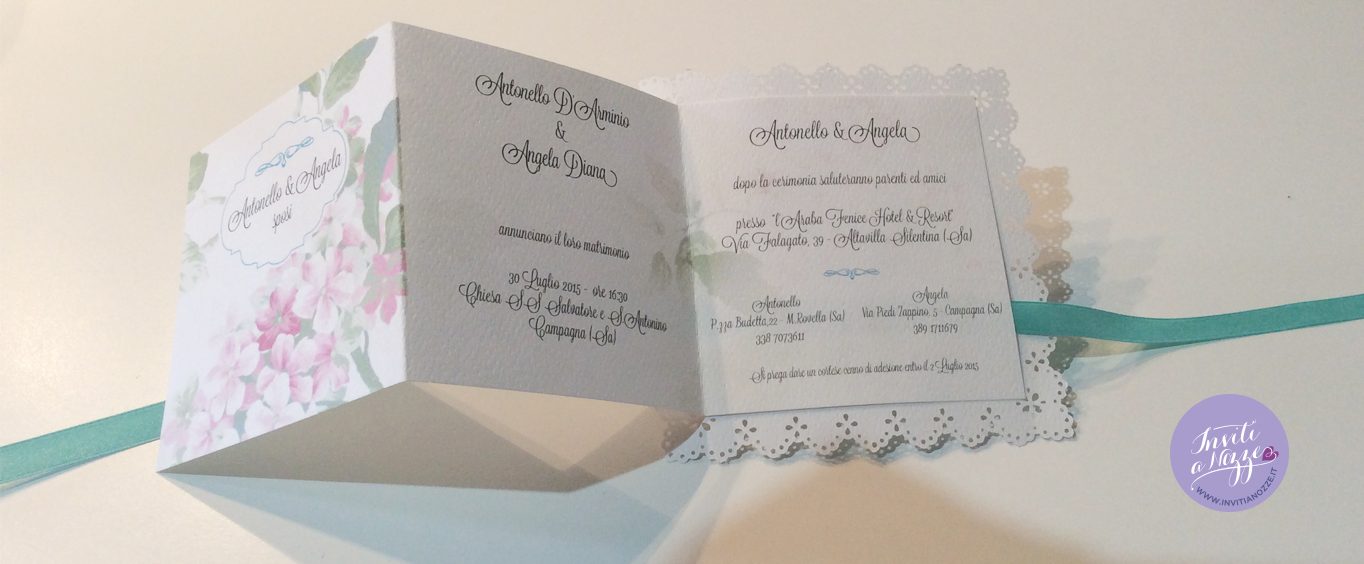 Antonello & Angela
sposi
Antonello D'Arminio
&
Angela Diana
annunciano il loro matrimonio
30 Luglio 2015 - ore 16:30
Chiesa S.S Salvatore e S.Antonino
Campagna (Sa)
Antonello & Angela
dopo la cerimonia saluteranno parenti ed amici
presso "l'Araba Fenice Hotel & Resort"
Via Falagato, 39 - Altavilla Silentina (Sa)
Antonello
P.zza Budetta,22 - M.Rovella (Sa)
338 7073611
Angela
Via Piedi Zappino, 5 - Campagna (Sa)
389 1711679
Si prega dare un cortese cenno di adesione entro il 2 Luglio 2015
Inviti
a Nozze
www.invitianozze.it